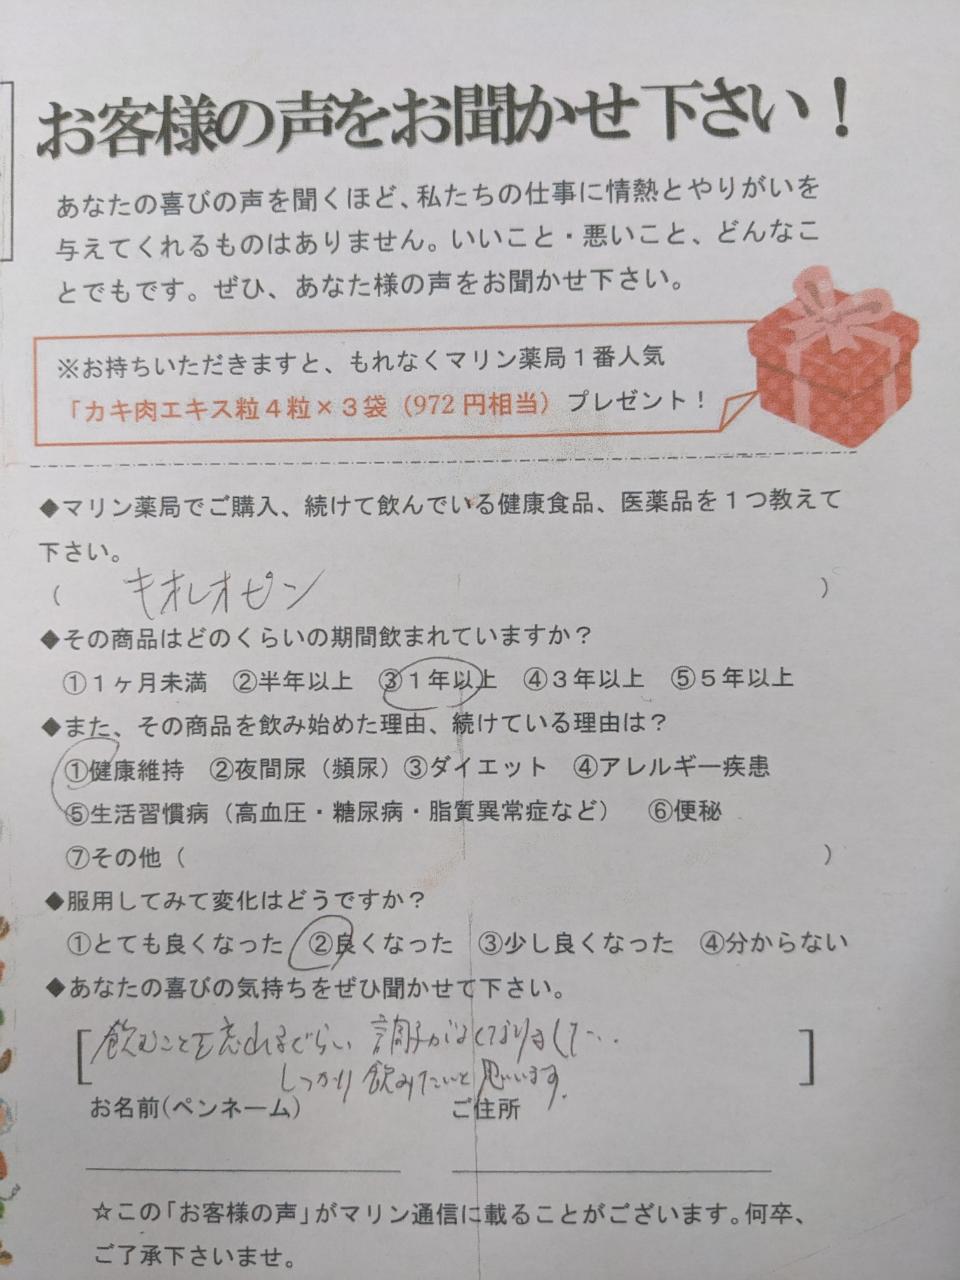 お客様の声をお聞かせ下さい！
あなたの喜びの声を聞くほど、私たちの仕事に情熱とやりがいを
与えてくれるものはありません。いいこと・悪いこと、どんなこ
とでもです。ぜひ、あなた様の声をお聞かせ下さい。
※お持ちいただきますと、もれなくマリン薬局１番人気
「カキ肉エキス粒４粒×３袋（972円相当）プレゼント！
◆マリン薬局でご購入、続けて飲んでいる健康食品、医薬品を１つ教えて
下さい。
（ キオレオピン ）
◆その商品はどのくらいの期間飲まれていますか？
①１ヶ月未満 ②半年以上 ③１年以上 ④３年以上 ⑤５年以上
◆また、その商品を飲み始めた理由、続けている理由は？
①健康維持 ②夜間尿（頻尿）③ダイエット ④アレルギー疾患
⑤生活習慣病（高血圧・糖尿病・脂質異常症など） ⑥便秘
⑦その他（ ）
◆服用してみて変化はどうですか？
①とても良くなった ②良くなった ③少し良くなった ④分からない
◆あなたの喜びの気持ちをぜひ聞かせて下さい。
[飲むことを忘れるぐらい 調子がよくなりまして… ]
しっかり飲みたいと思います.
お名前(ペンネーム) ご住所
☆この「お客様の声」がマリン通信に載ることがございます。何卒、
ご了承下さいませ。